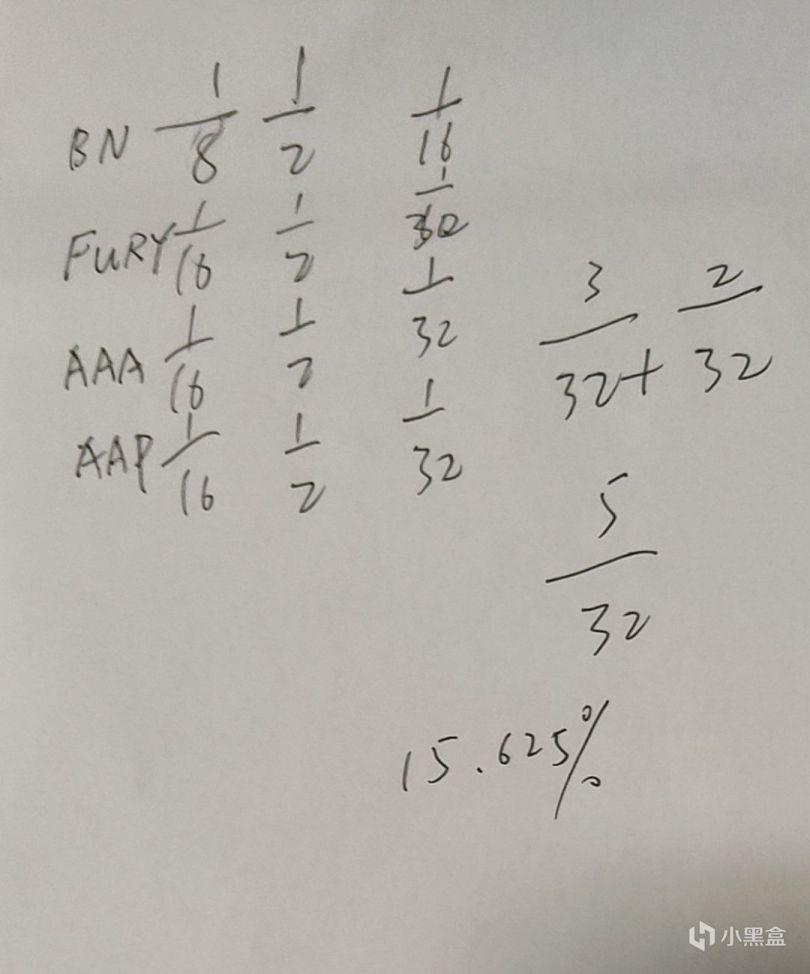 BN 1/8 1/2 1/16
FURY 1/16 1/2 1/32
AAA 1/16 1/2 1/32
AAP 1/16 1/2 1/32
3/32 + 2/32
5/32
15.625%
小黑盒